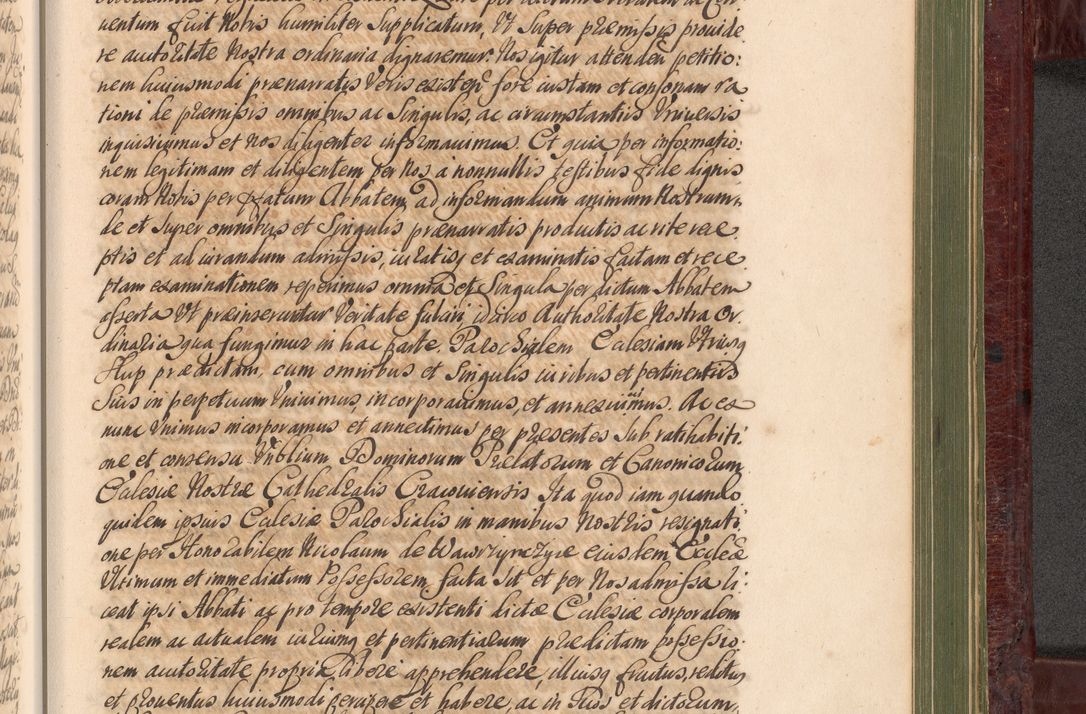 uentum fuit Nobis humiliter Supplicatum, Vt Super præmissis prouide
re auctoritate Nostra ordinaria dignaremur. Nos igitur attenden petitio:
nem huiusmodi prænarratis Veris existen fore iustam et consonam ra
tioni de præmissis omnibus ac Singulis, ac circumstantiis Vniuersis
inquisiuimus et nos diligenter informauimus. Et quia per informatio:
nem legitimam et diligentem per Nos a nonnullis testibus fide dignis
coram Nobis per pfatum Abbatem, ad informandum animum Nostrum,
de et Super omnibus et Singulis prænarratis productis ac rite rece
ptis et ad iurandum admissis, iuratisq et examinatis factam et rece
ptam examinationem reperimus omnia et Singula per dictum Abbatem
asserta Vt præinseruntur Veritate fulciri, idcirco Authoritate Nostra Or
dinaria qua fungimur in hac parte. Parochialem Ecclesiam Vtriusq
Hup prædictam, cum omnibus et Singulis iuribus et pertinentiis
Suis in perpetuum Vniuimus, incorporauimus, et annexuimus. Ac ex
nunc Vnimus incorporamus et annectimus per præsentes Sub ratihabiti:
one et consensu Vnblium Dominorum Prælatorum et Canonicorum
Eclesiæ Nostræ Cathedralis Cracouiensis Ita quod iam quando
quidem ipsius Eclesiæ Parochialis in manibus Nostris resignati
one per Honorabilem Nicolaum de Wawrzynczyce eiusdem Ecclæ
Vltimum et immediatum Possessorem facta Sit et per Nos admissa li:
ceat ipsi Abbati ac pro tempore existenti dictæ Eclesiæ corporalem
realem ac actualem iuriumq et pertinentiarum prædictam possessio:
nem auctoritate propria libere apprehendere, illiusq fructus, reditus
et prouentus huiusmodi percipere et habere, ac in Suos et dictorum,